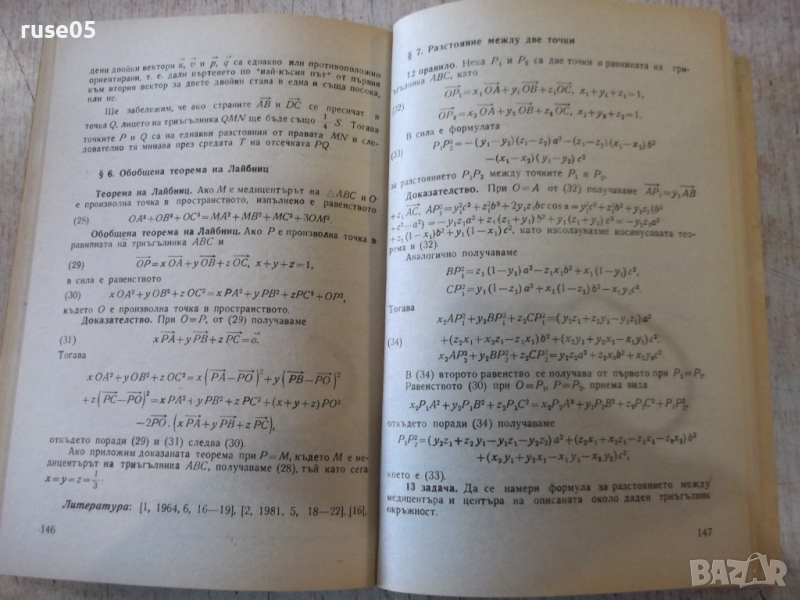 ruse05
дени двойки вектори u, v и p, q са еднакво или противоположно
ориентирани, т. е. дали въртенето по "най-късия път" от първия
към втория вектор за двете двойки става в една и съща посока,
или не.
Ще забележим, че ако страните AB и DC се пресичат в
точка Q, лицето на триъгълника QMN ще бъде също 1/4 S. Тогава
точките P и Q са на еднакви разстояния от правата MN и сле-
дователно тя минава през средата T на отсечката PQ.
§ 6. Обобщена теорема на Лайбниц
Теорема на Лайбниц. Ако M е медицентърът на △ABC и O
е произволна точка в пространството, изпълнено е равенството
(28) OA²+OB²+OC²=MA²+MB²+MC²+3OM².
Обобщена теорема на Лайбниц. Ако P е произволна точка в
равнината на триъгълника ABC и
(29) OP=x OA+y OB+z OC, x+y+z=1,
в сила е равенството
(30) x OA²+y OB²+z OC²=x PA²+y PB²+z PC²+OP²,
където O е произволна точка в пространството.
Доказателство. При O=P, от (29) получаваме
(31) x PA+y PB+z PC=o.
Тогава
x OA²+y OB²+z OC²=x(PA−PO)²+y(PB−PO)²
+z(PC−PO)²=x PA²+y PB²+z PC²+(x+y+z) PO²
−2PO.(x PA+y PB+z PC),
откъдето поради (29) и (31) следва (30).
Ако приложим доказаната теорема при P=M, където M е ме-
дицентърът на триъгълника ABC, получаваме (28), тъй като сега
x=y=z=1/3.
Литература: [1, 1964, 6, 16—19]. [2, 1981, 5, 18—22]. [16].
146
§ 7. Разстояние между две точки
12 правило. Нека P₁ и P₂ са две точки в равнината на три-
ъгълника ABC, като
OP₁=x₁OA+y₁OB+z₁OC, x₁+y₁+z₁=1,
(32)
OP₂=x₂OA+y₂OB+z₂OC, x₂+y₂+z₂=1.
В сила е формулата
(33) P₁P₂²=−(y₁−y₂)(z₁−z₂)a²−(z₁−z₂)(x₁−x₂)b²
−(x₁−x₂)(y₁−y₂)c²
за разстоянието P₁P₂ между точките P₁ и P₂.
Доказателство. При O=A от (32) получаваме AP₁=y₁AB
+z₁AC, AP₁²=y₁²c²+z₁²b²+2y₁z₁bc cos α=y₁²c²+z₁²b²+y₁z₁(b²
+c²−a²)=−y₁z₁a²+z₁(z₁+y₁)b²+y₁(z₁+y₁)c²=−y₁z₁a²
+z₁(1−x₁)b²+y₁(1−x₁)c², като използувахме косинусовата тео-
рема и (32).
Аналогично получаваме
BP₁²=z₁(1−y₁)a²−z₁x₁b²+x₁(1−y₁)c²,
CP₁²=y₁(1−z₁)a²+x₁(1−z₁)b²−x₁y₁c².
Тогава
x₂AP₁²+y₂BP₁²+z₂CP₁²=(y₂z₁+z₂y₁−y₁z₁)a²
(34) +(z₂x₁+x₂z₁−z₁x₁)b²+(x₂y₁+y₂x₁−x₁y₁)c²,
x₂AP₂²+y₂BP₂²+z₂CP₂²=y₂z₂a²+z₂x₂b²+x₂y₂c².
В (34) второто равенство се получава от първото при P₁=P₂.
Равенството (30) при O=P₁, P=P₂, приема вида
x₂P₁A²+y₂P₁B²+z₂P₁C²=x₂P₂A²+y₂P₂B²+z₂P₂C²+P₁P₂²,
откъдето поради (34) получаваме
P₁P₂²=(y₂z₁+z₂y₁−y₁z₁−y₂z₂)a²+(z₂x₁+x₂z₁−z₁x₁−z₂x₂)b²
+(x₂y₁+y₂x₁−x₁y₁−x₂y₂)c²,
което е (33).
13 задача. Да се намери формула за разстоянието между
медицентъра и центъра на описаната около даден триъгълник
окръжност.
147
BAZAR
bazar.bg